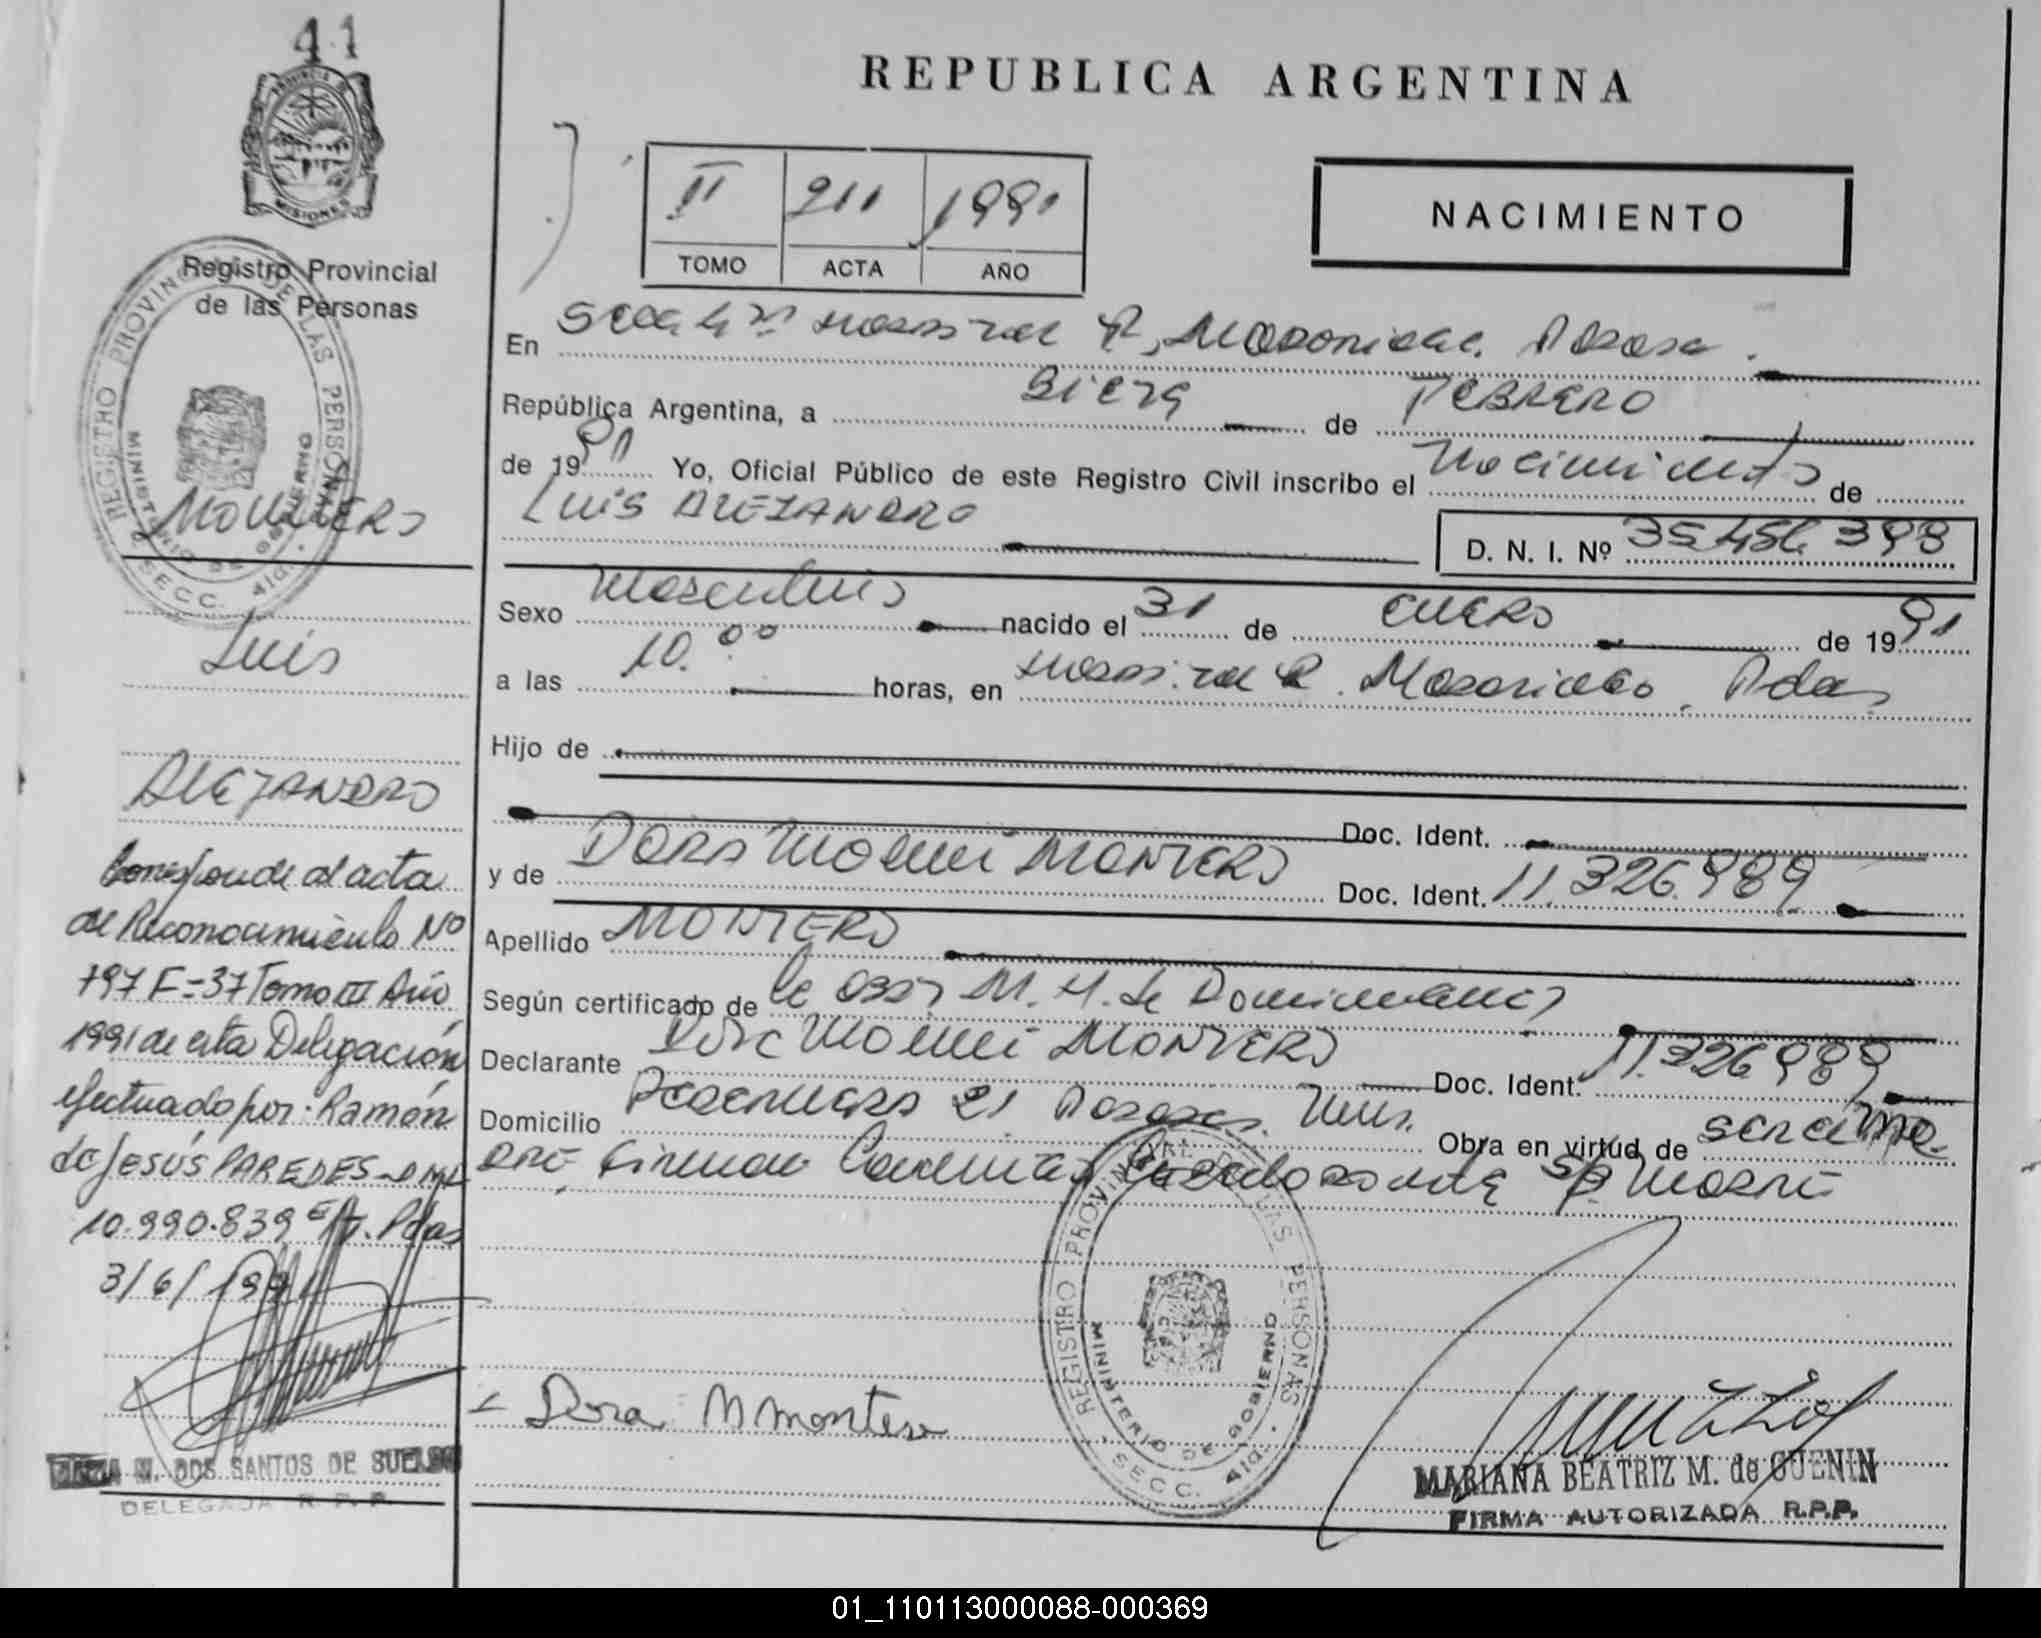 41
PROVINCIA DE
MISIONES
Registro Provincial
de las Personas
REGISTRO PROVINCIAL DE LAS PERSONAS
MINISTERIO DE GOBIERNO
SECC. 4ta.
MONTERO
Luis
ALEJANDRO
Corresponde al acta
de Reconocimiento Nº
797 F-37 Tomo III Año
1991 de esta Delegación
efectuado por: Ramón
de JESÚS PAREDES
10.990.839 Pdas
3/6/1991
M. DOS SANTOS DE
DELEGADA R.P.P.
REPUBLICA ARGENTINA
II 211 1991
TOMO ACTA AÑO
NACIMIENTO
En Secc 4ta Hospital R. Madariaga Posadas
República Argentina, a SIETE de FEBRERO
de 1991 Yo, Oficial Público de este Registro Civil inscribo el Nacimiento de
LUIS ALEJANDRO
D. N. I. Nº 35.456.398
Sexo Masculino nacido el 31 de ENERO de 1991
a las 10.00 horas, en Hospital R. Madariaga, Pdas
Hijo de
Doc. Ident.
y de DORA Noemi MONTERO Doc. Ident. 11.326.989
Apellido MONTERO
Según certificado de M. M. de
Declarante Noemi MONTERO Doc. Ident. 11.326.989
Domicilio 21 Posadas Obra en virtud de
s/p Madre
REGISTRO PROVINCIAL DE LAS PERSONAS
MINISTERIO DE GOBIERNO
SECC. 4ta.
Dora N Montero
MARIANA BEATRIZ M. de GUENIN
FIRMA AUTORIZADA R.P.P.
01_110113000088-000369